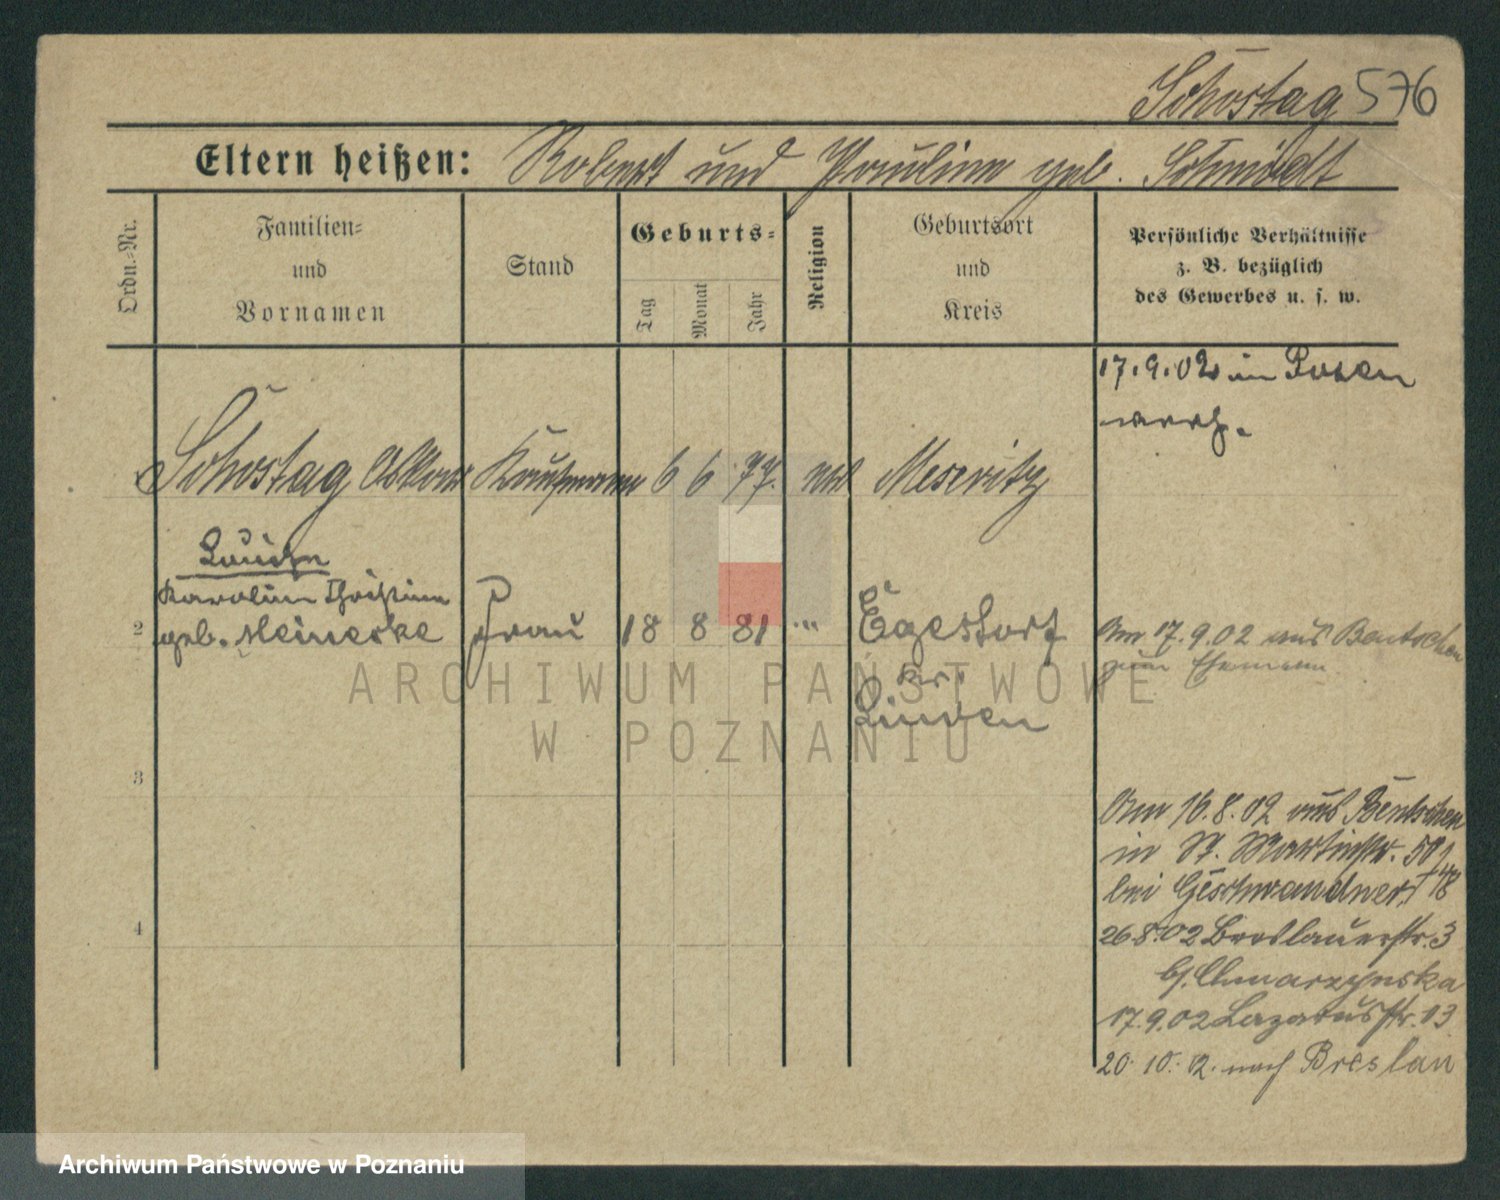 Schostag 576
Eltern heißen: Robert und Pauline geb. Schmidt
Ordn.-Nr.
Familien-
und
Vornamen
Stand
Geburts-
Tag
Monat
Jahr
Religion
Geburtsort
und
Kreis
Persönliche Verhältnisse
z. B. bezüglich
des Gewerbes u. s. w.
17.9.02 in Posen
verh.
Schostag Oskar Kaufmann 6 6 77. Meseritz
Louise
Karoline Christine
2 geb. Meineske Frau 18 8 81 " Egestorf
Krs.
Linden
Am 17.9.02 aus Bentschen
zum Ehemann
3
Am 16.8.02 aus Bentschen
in St. Martinstr. 50
bei Geschwandner
4
26.8.02 Breslauerstr. 3
bei Chmarzynska
17.9.02 Lazarusstr. 13
20.10.02. nach Breslau
ARCHIWUM PAŃSTWOWE
W POZNANIU
Archiwum Państwowe w Poznaniu